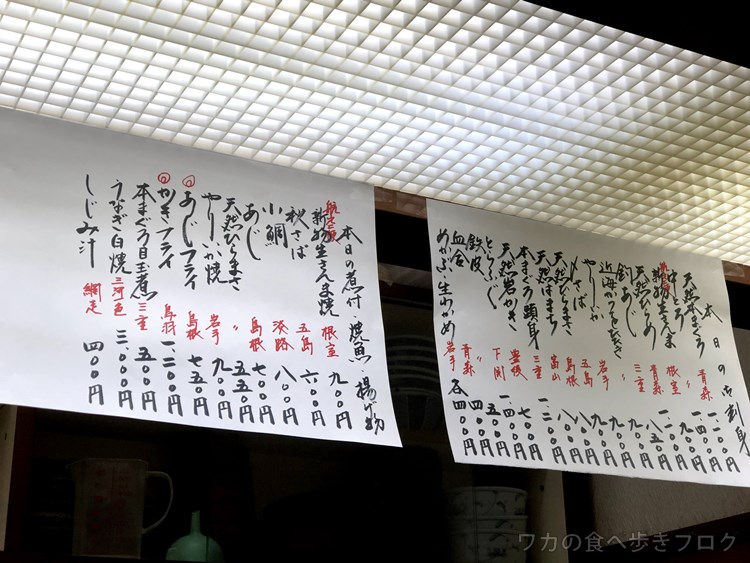 本日のお刺身
天然本まぐろ 青森
中とろ 〃 一四〇〇円
新物生さんま 根室
天然ひらめ 青森
釣あじ
近海かつをたたき 三重
やりいか 岩手 九〇〇円
〆さば 五島
天然ひらまさ 島根
天然はまち 富山
本まぐろ頭身 三重
天然岩かき 豊後
とらふぐ 下関 一四〇〇円
鉄皮 〃 五〇〇円
血合 青森 四〇〇円
めかぶ・生わかめ 岩手 各四〇〇円
本日の煮付・焼魚・揚げ物
航空便 新物生さんま焼 根室 九〇〇円
秋さば 五島 六〇〇円
小鯛 淡路 八〇〇円
あじ 島根 七〇〇円
天然ひらまさ 〃 五五〇円
やりいか焼 岩手 九〇〇円
あじフライ 島根 七五〇円
かきフライ 鳥羽 一二〇〇円
本まぐろ目玉煮 三重 五〇〇円
うなぎ白焼 三河一色 三、〇〇〇円
しじみ汁 網走 四〇〇円
ワカの食べ歩きブログ